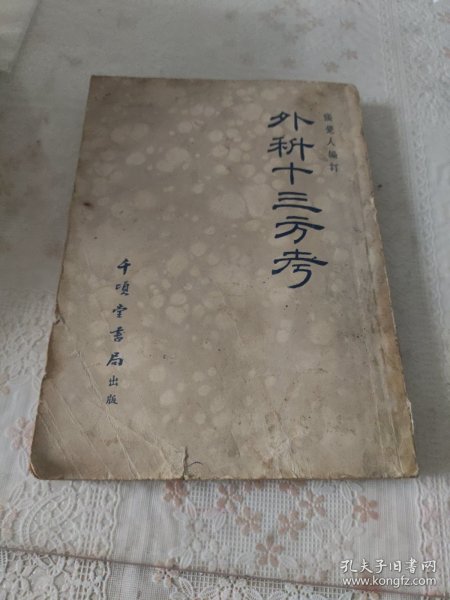 張覺人編訂
外科十三方考
千頃堂書局出版
孔夫子旧书网
www.kongfz.com